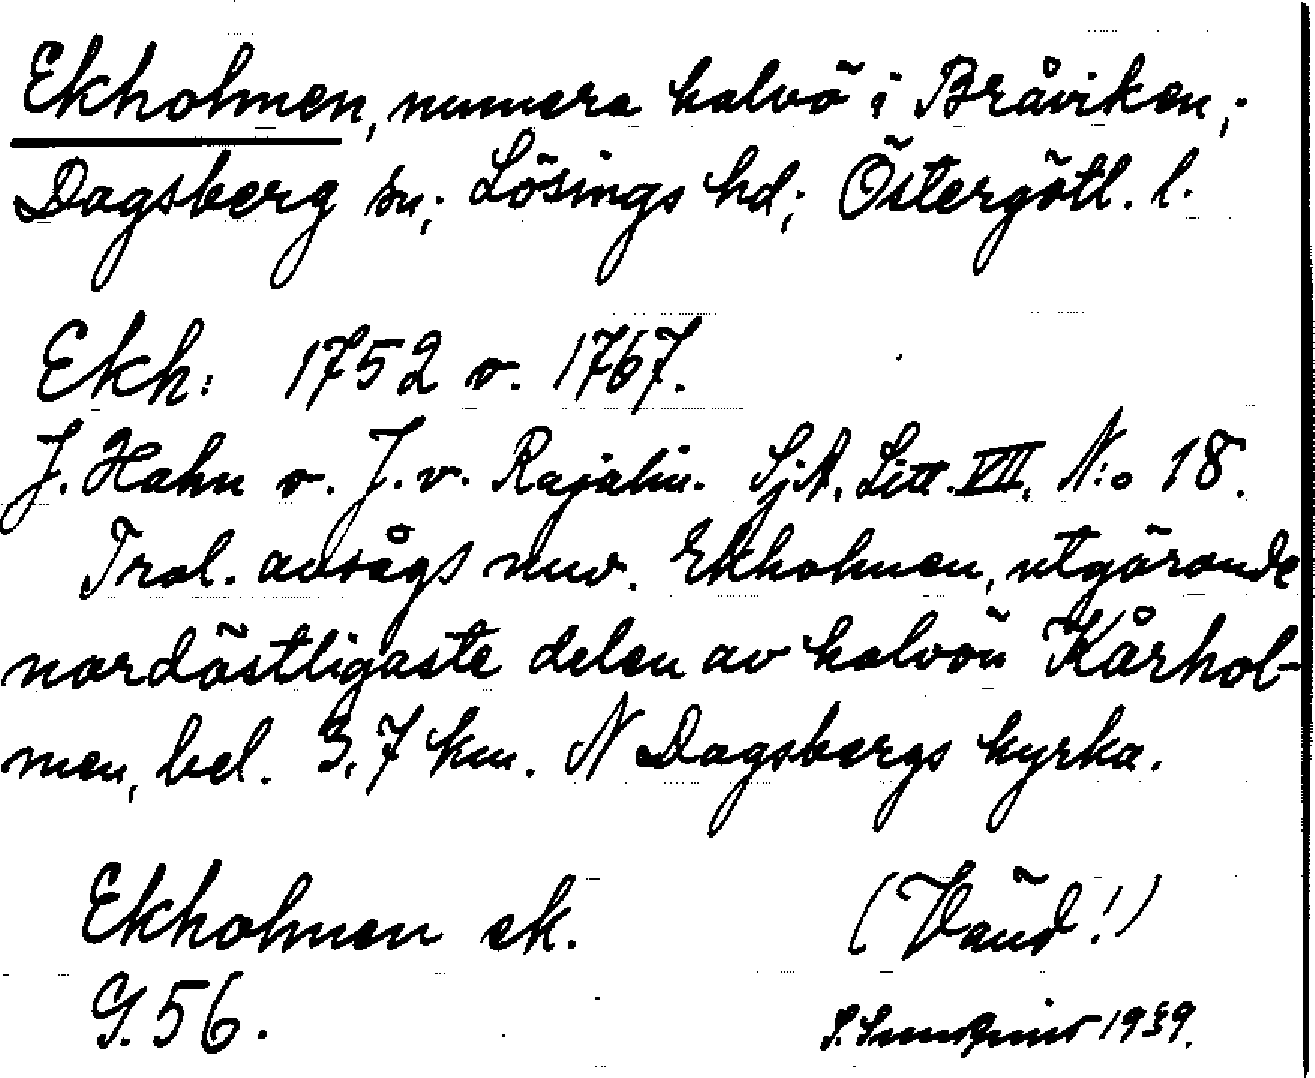 Ekholmen, numera halvö i Bråviken;
Dagsberg sn; Lösings hd; Östergötl. l.
Ekh: 1752 o. 1767.
J. Hahn o. J. v. Rajalin. SjA. Litt. VII, N:o 18.
Trol. avsågs nuv. Ekholmen, utgörande
nordöstligaste delen av halvön Kårhol-
men, bel. 3,7 km. N Dagsbergs kyrka.
Ekholmen ek.
(Vänd!)
G. 56.
1939.